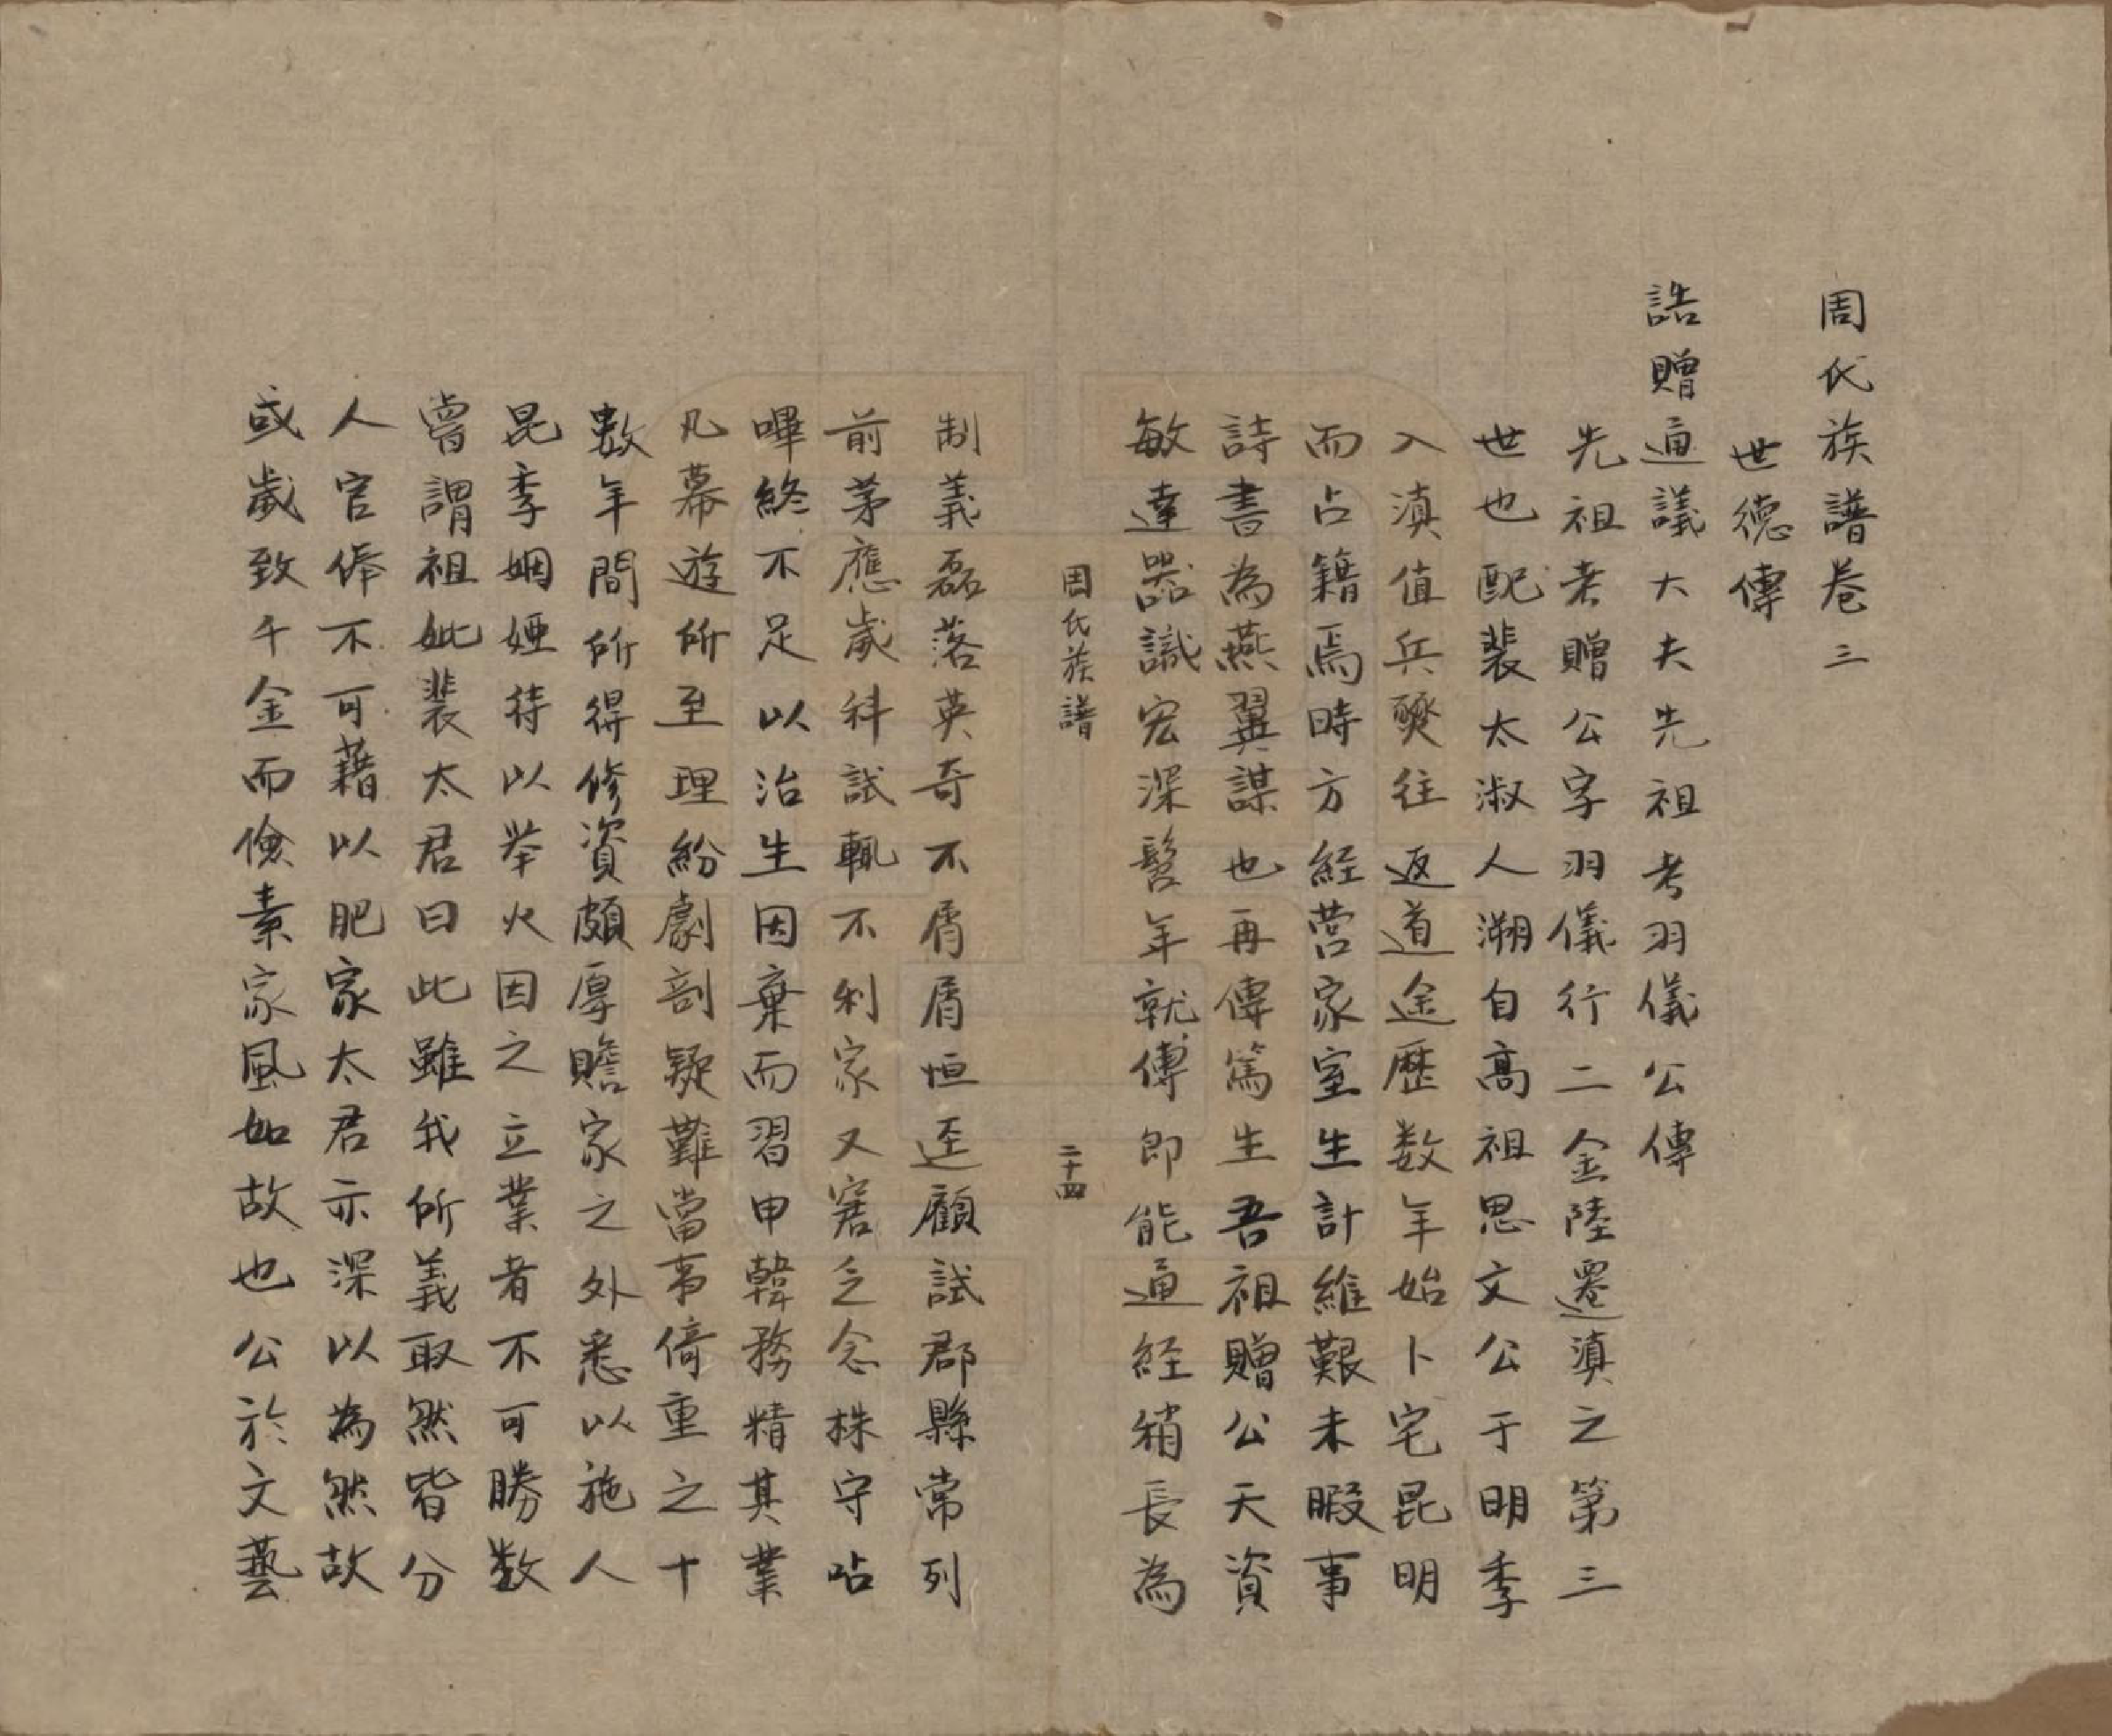 周氏族譜卷三
世德傳
誥贈通議大夫先祖考羽儀公傳
先祖考贈公字羽儀行二金陸遷滇之第三
世也配裴太淑人溯自高祖思文公于明季
入滇值兵燹往返道途歷数年始卜宅昆明
而占籍焉時方経营家室生計維艱未暇事
詩書為燕翼謀也再傳篤生吾祖贈公天資
敏達器識宏深髫年就傅即能通経稍長為
周氏族譜
二十四
制義磊落英奇不屑屑恒迳顧試郡縣常列
前茅應歲科試輒不利家又窘乏念株守呫
嗶終不足以治生因棄而習申韓務精其業
凡幕遊所至理紛劇剖疑難當事倚重之十
數年間所得修資頗厚贍家之外悉以施人
昆季姻婭待以举火因之立業者不可勝数
嘗謂祖妣裴太君曰此雖我所義取然皆分
人官俸不可藉以肥家太君亦深以為然故
或歲致千金而儉素家風如故也公於文藝